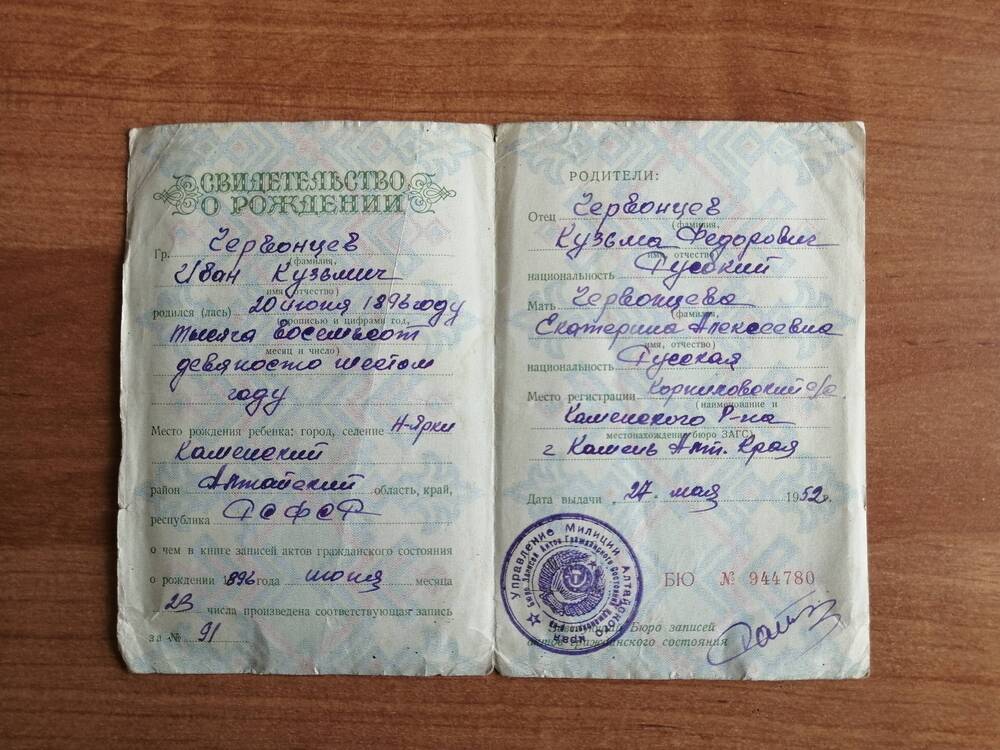 СВИДЕТЕЛЬСТВО
О РОЖДЕНИИ
Гр. Червонцев
(фамилия,
Иван Кузьмич
имя, отчество)
родился (лась) 20 июня 1896 году
(прописью и цифрами год,
тысяча восемьсот
месяц и число)
девяносто шестом
году
Место рождения ребенка: город, селение Н-Ярки
Каменский
район Алтайский область, край,
республика РСФСР
о чем в книге записей актов гражданского состояния
о рождении 1896 года июня месяца
23 числа произведена соответствующая запись
за № 91
РОДИТЕЛИ:
Отец Червонцев
(фамилия,
Кузьма Федорович
имя, отчество)
национальность Русский
Мать Червонцева
(фамилия,
Екатерина Алексеевна
имя, отчество)
национальность Русская
Место регистрации Корниловский с/с
(наименование и
Каменского Р-на
местонахождение бюро ЗАГС)
г Камень Алт. Края
Дата выдачи 27 мая 1952 г.
Управление Милиции Алтайского края
Бюро Записей Актов Гражданского Состояния
БЮ № 944780
Заведующий Бюро записей
актов гражданского состояния